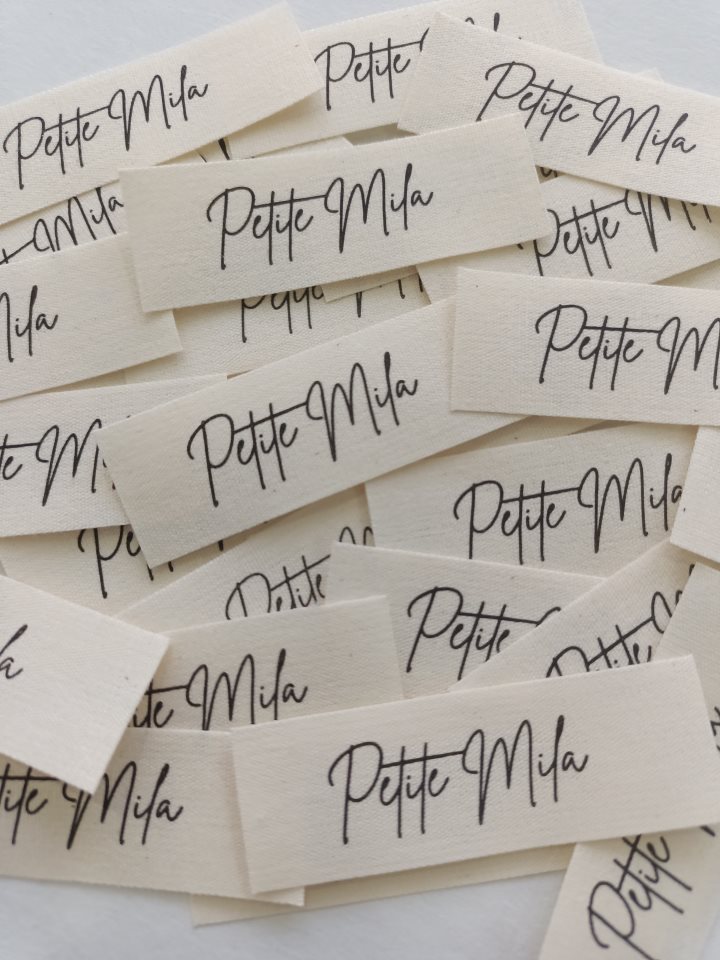 Petite Mila
Petite
Petite Mila
Petite Mila
Mila
Petite M
Mila
Petite M
Petite M
Petite Mila
te M
Petite Mila
Pe
Petite
Petite
Petite
la
ite Mila
Petite Mila
tite Mila
Petite